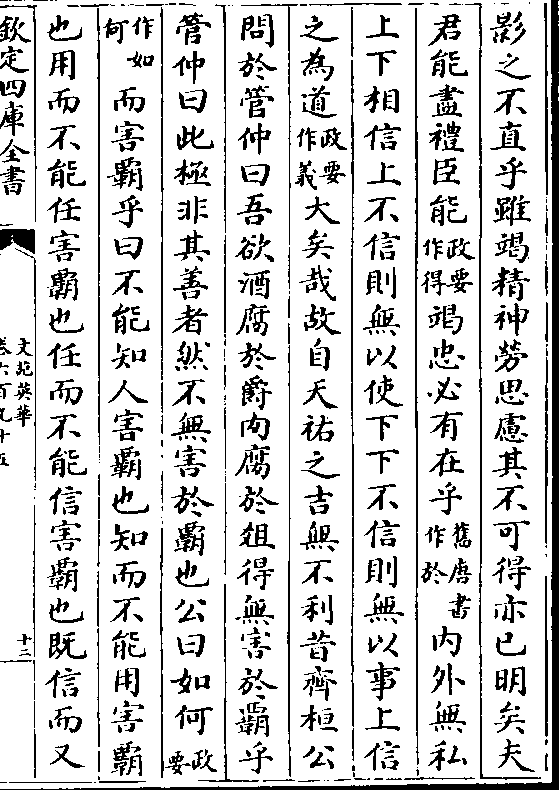 影之不直乎雖竭精神勞思慮其不可得亦已明矣夫
君能盡禮臣能政要作得竭忠必有在乎舊唐書作於內外無私
上下相信上不信則無以使下下不信則無以事上信
之為道政要作義大矣哉故自天祐之吉無不利昔齊桓公
問於管仲曰吾欲酒腐於爵肉腐於俎得無害於霸乎
管仲曰此極非其善者然不無害於霸也公曰如何政要
作如何而害霸乎曰不能知人害霸也知而不能用害霸
也用而不能任害霸也任而不能信害霸也既信而又
欽定四庫全書
文苑英華
卷六百九十五
十二